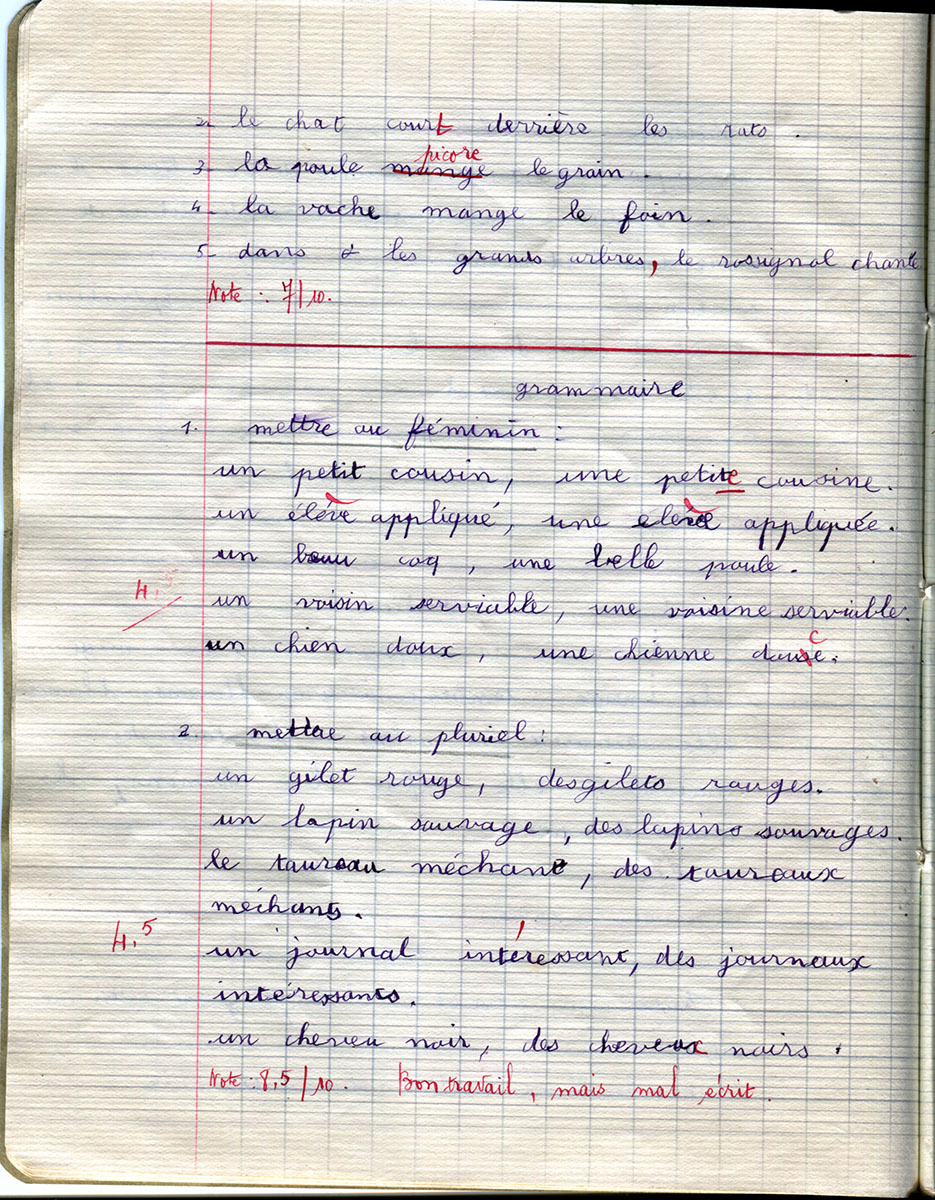 2- le chat court derrière les rats.
picore
3- la poule mange le grain.
4- la vache mange le foin.
5- dans les grands arbres, le rosignol chante
Note : 7/10.
grammaire
1. mettre au féminin :
un petit cousin, une petite cousine.
un élève appliqué, une elève appliquée.
un beau coq, une belle poule.
4.
un voisin serviable, une voisine serviable.
c
un chien doux, une chienne douxe.
2. mettre au pluriel :
un gilet rouge, des gilets rouges.
un lapin sauvage, des lapins sauvages.
le taureau méchant, des taureaux
méchants.
4.5
un journal intéressant, des journaux
intéressants.
un cheveu noir, des cheveux noirs.
Note : 8,5/10. Bon travail, mais mal écrit.